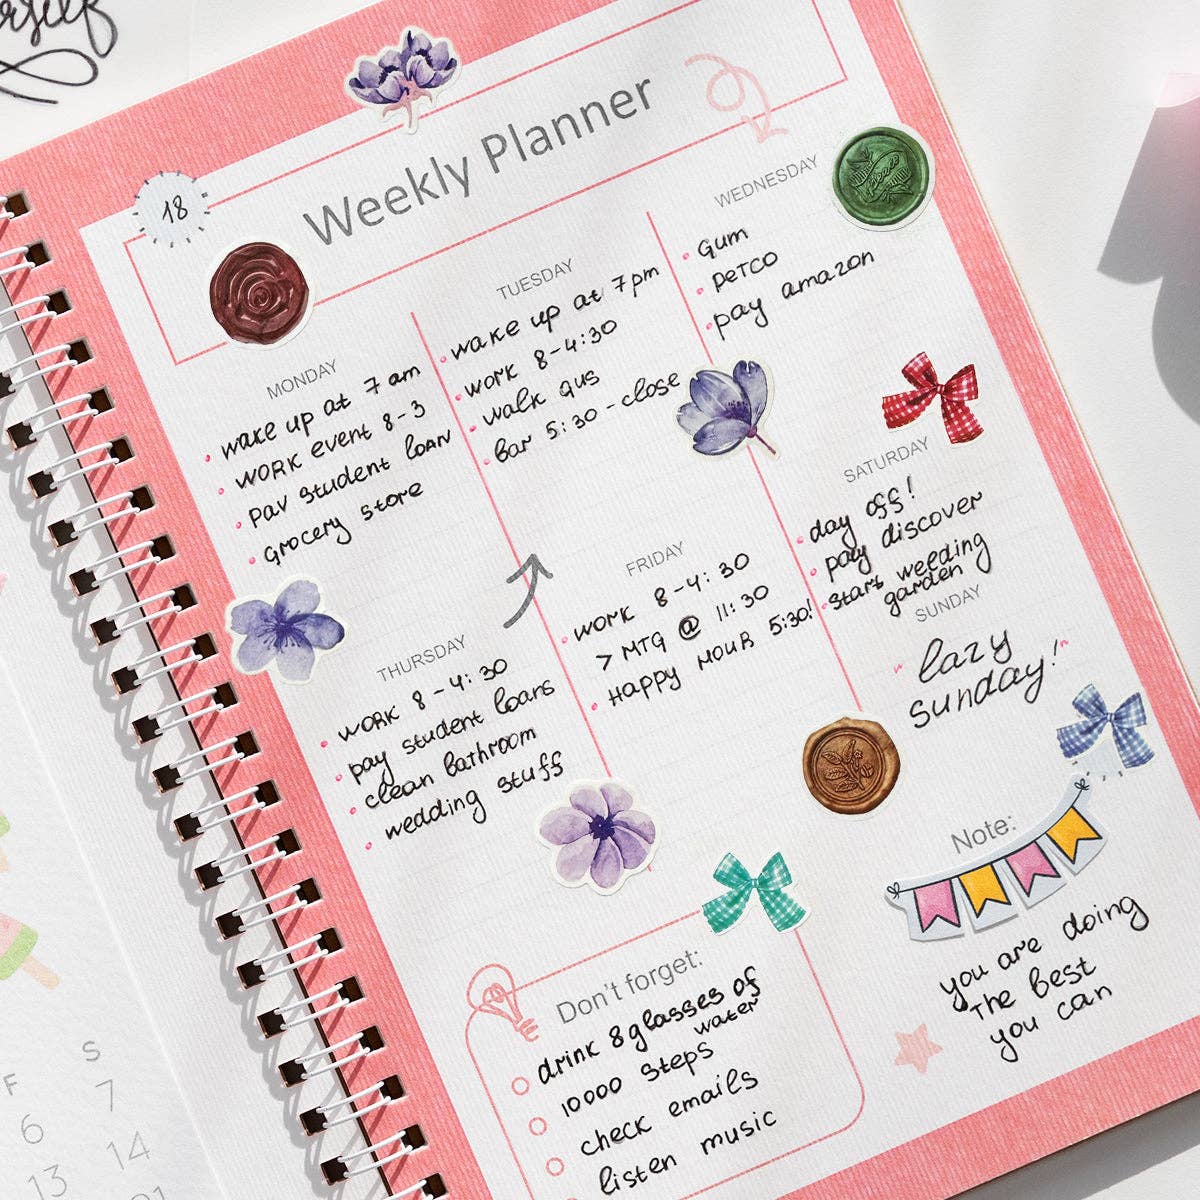 Weekly Planner
18
MONDAY
wake up at 7 am
WORK event 8-3
pav student loan
grocery store
TUESDAY
wake up at 7pm
work 8-4:30
walk gus
bar 5:30-close
WEDNESDAY
Gum
PETCO
pay amazon
THURSDAY
WORK 8-4:30
pay student loans
clean bathroom
wedding stuff
FRIDAY
WORK 8-4:30
> MTG @ 11:30
HAPPY HOUR 5:30!
SATURDAY
day off!
pay discover
start weeding
garden
SUNDAY
lazy
sunday!
Don't forget:
drink 8 glasses of
water
10000 steps
check emails
listen music
Note:
you are doing
The best
you can
F S
6 7
13 14